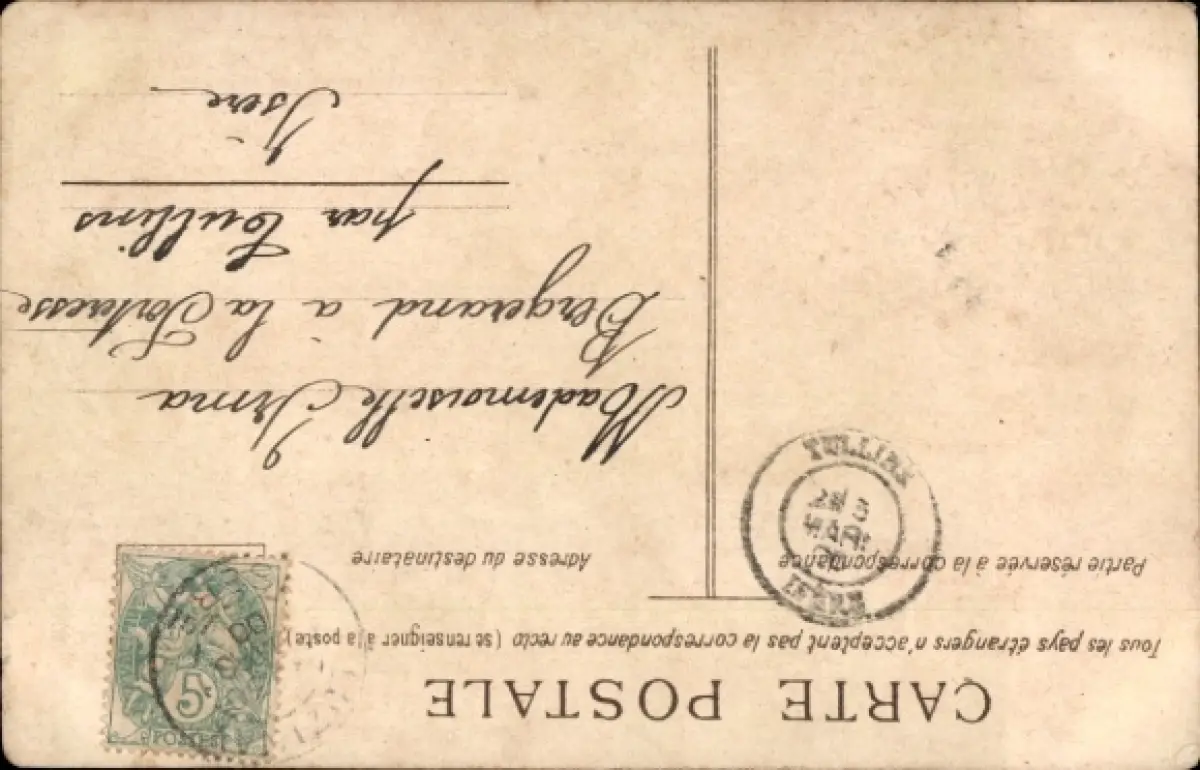 CARTE POSTALE
Tous les pays étrangers n'acceptent pas la correspondance au recto (se renseigner à la poste)
Partie réservée à la correspondance
Adresse du destinataire
TULLINS
ISÈRE
5c
POSTES
Mademoiselle Irma
Bergerand à la Forteresse
par Tullins
Isère